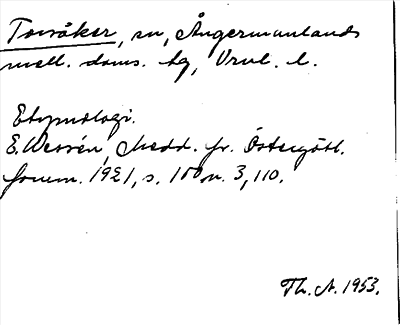 Torsåker, sn, Ångermanlands
mell. doms. hg, Vrnl. l.
Etymologi.
E. Wessén, Medd. fr. Östergötl.
fornm. 1921, s. 100 n. 3, 110.
Th. A. 1953.